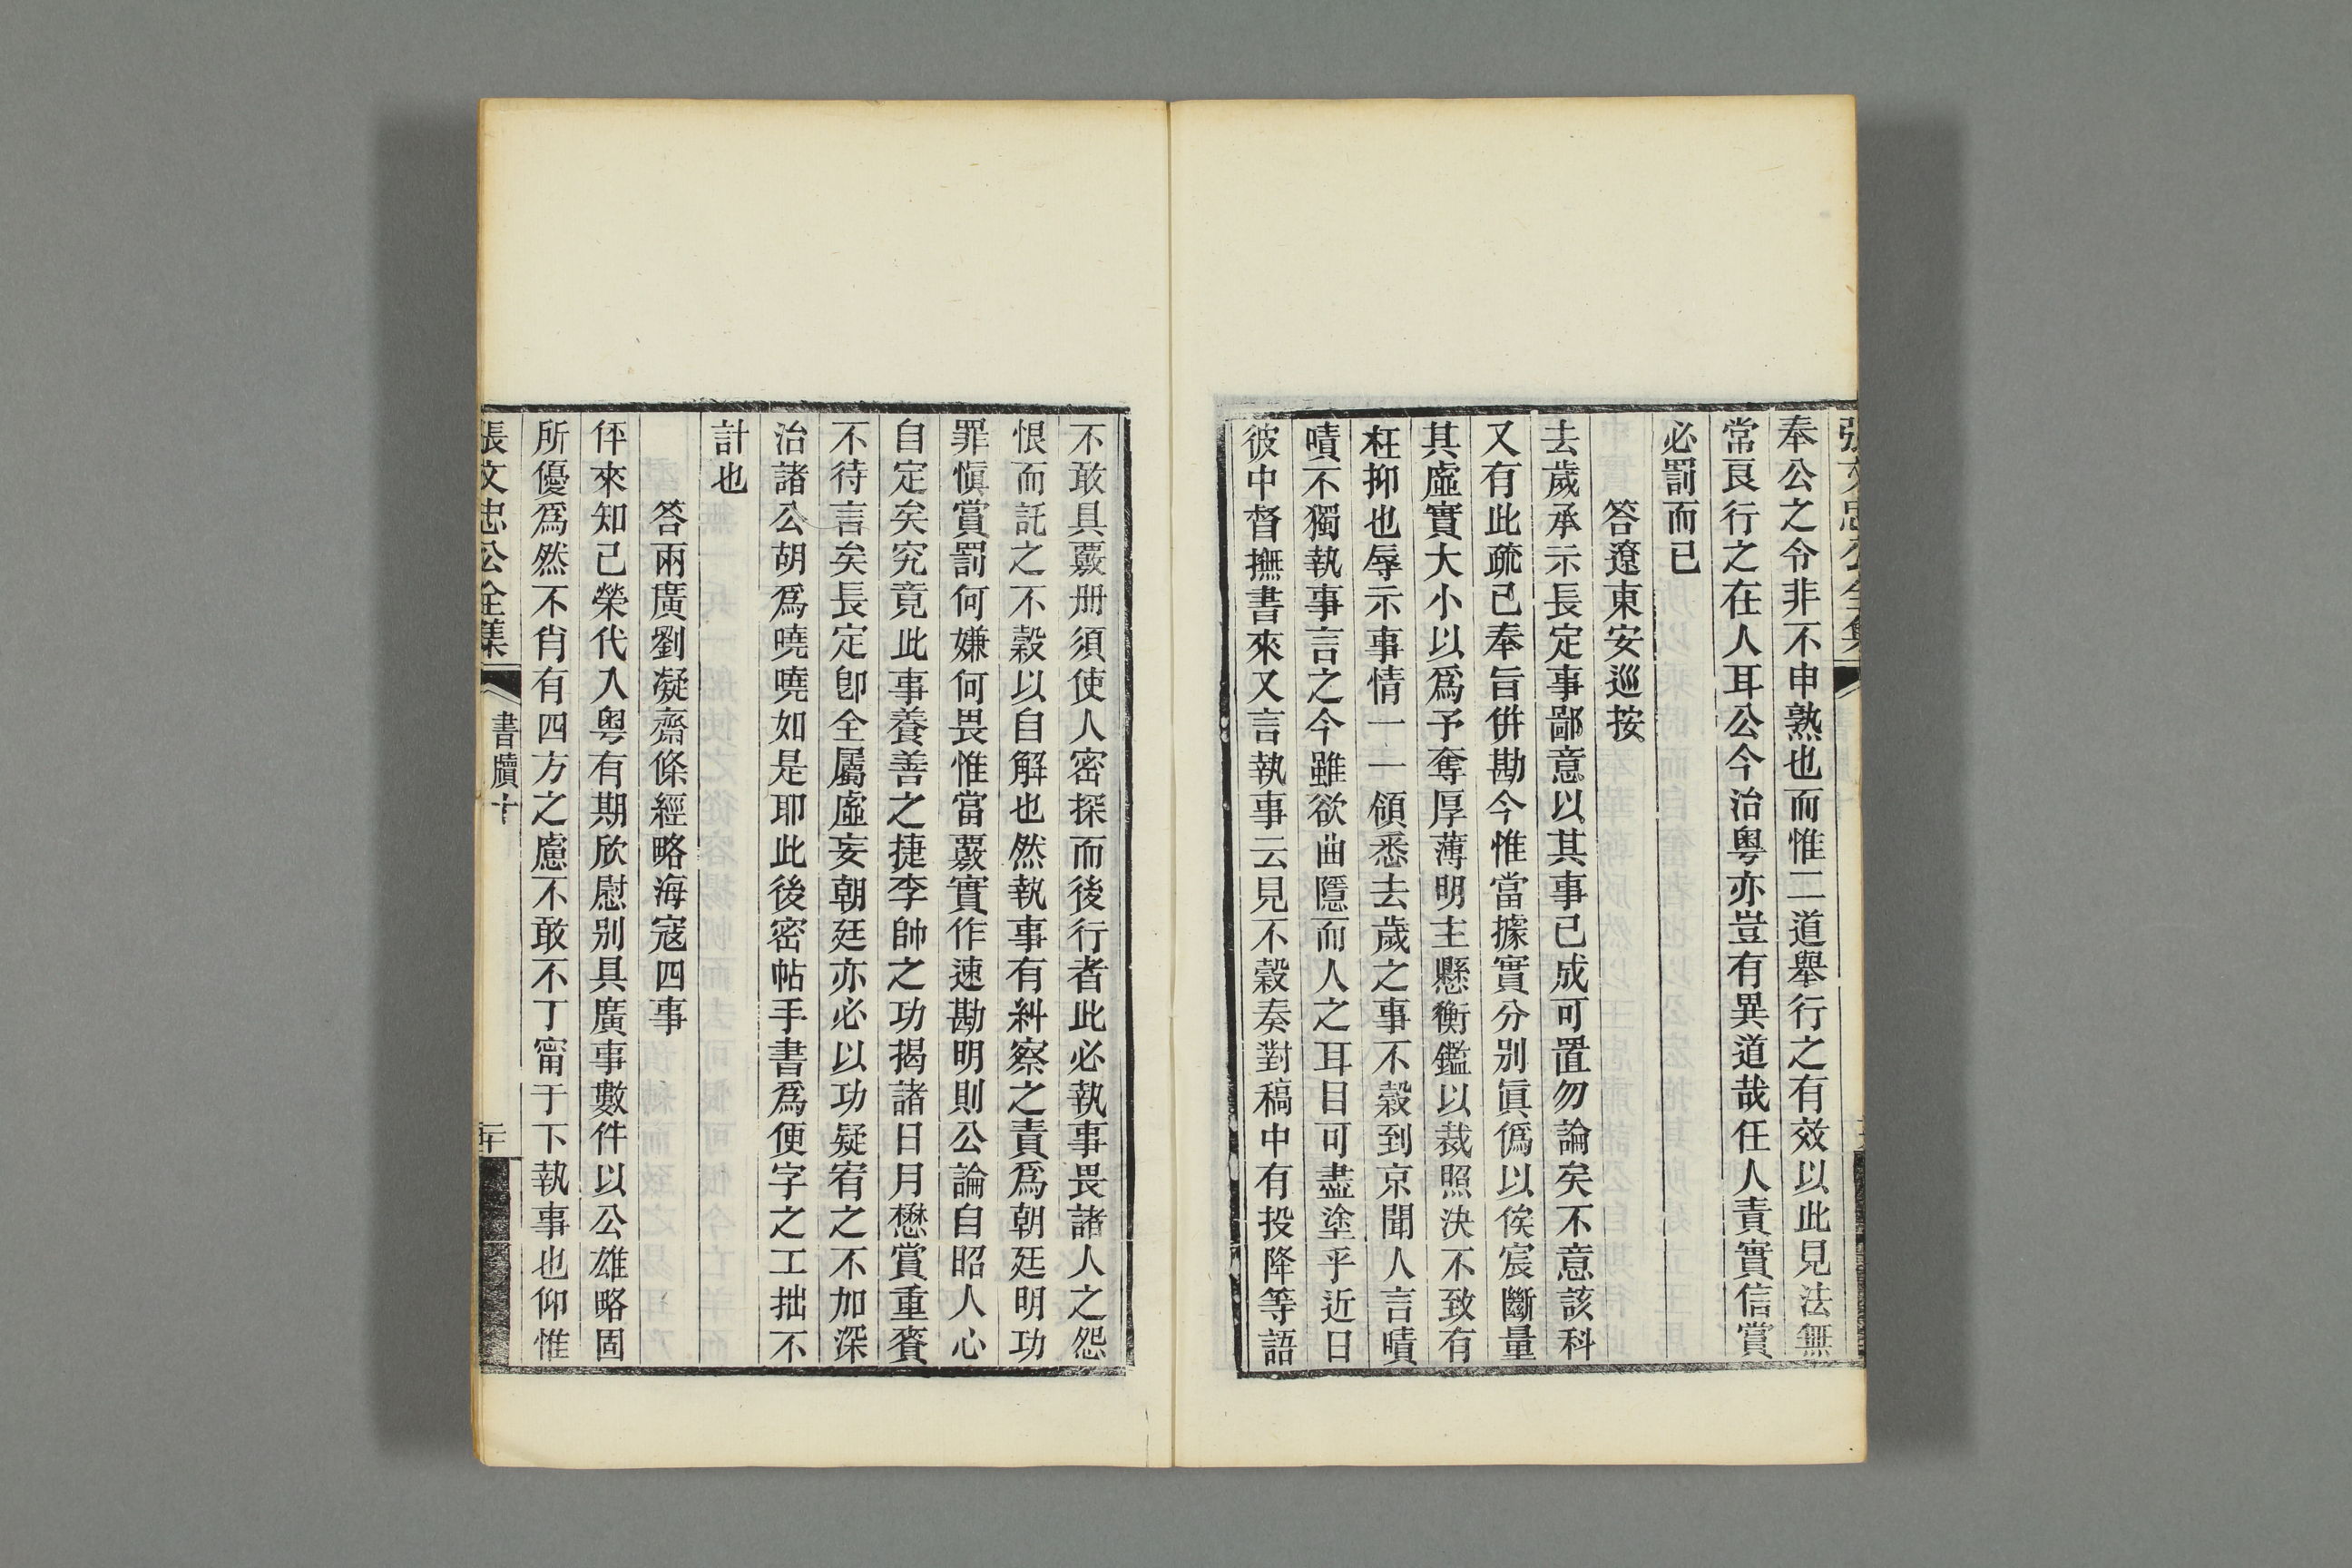 張文忠公全集
奉公之令非不申熟也而惟二道舉行之有效以此見法無
常良行之在人耳公今治粵亦豈有異道哉任人責實信賞
必罰而已
答遼東安巡按
去歲承示長定事鄙意以其事已成可置勿論矣不意該科
又有此疏已奉旨併勘今惟當據實分別眞僞以俟宸斷量
其虛實大小以爲予奪厚薄明主懸衡鑑以裁照決不致有
枉抑也辱示事情一一領悉去歲之事不穀到京聞人言嘖
嘖不獨執事言之今雖欲曲隱而人之耳目可盡塗乎近日
彼中督撫書來又言執事云見不穀奏對稿中有投降等語
不敢具覈册須使人密探而後行者此必執事畏諸人之怨
恨而託之不穀以自解也然執事有糾察之責爲朝廷明功
罪愼賞罰何嫌何畏惟當覈實作速勘明則公論自昭人心
自定矣究竟此事養善之捷李帥之功揭諸日月懋賞重賚
不待言矣長定卽全屬虛妄朝廷亦必以功疑宥之不加深
治諸公胡爲曉曉如是耶此後密帖手書爲便字之工拙不
計也
答兩廣劉凝齋條經略海寇四事
伻來知已榮代入粵有期欣慰別具廣事數件以公雄略固
所優爲然不肖有四方之慮不敢不丁甯于下執事也仰惟
張文忠公全集
書牘十
二十